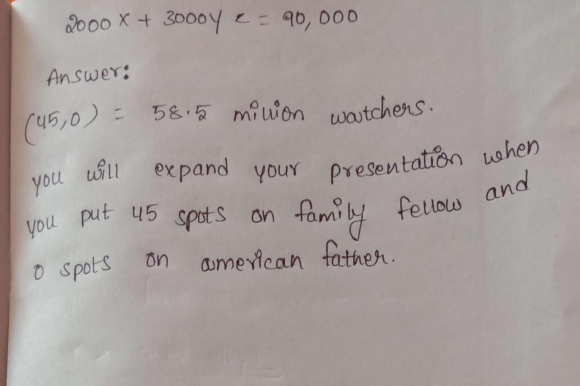 2000 x + 3000y <= 90,000
Answer:
(45,0) = 58.5 million watchers.
you will expand your presentation when
you put 45 spots on family fellow and
0 spots on american father.